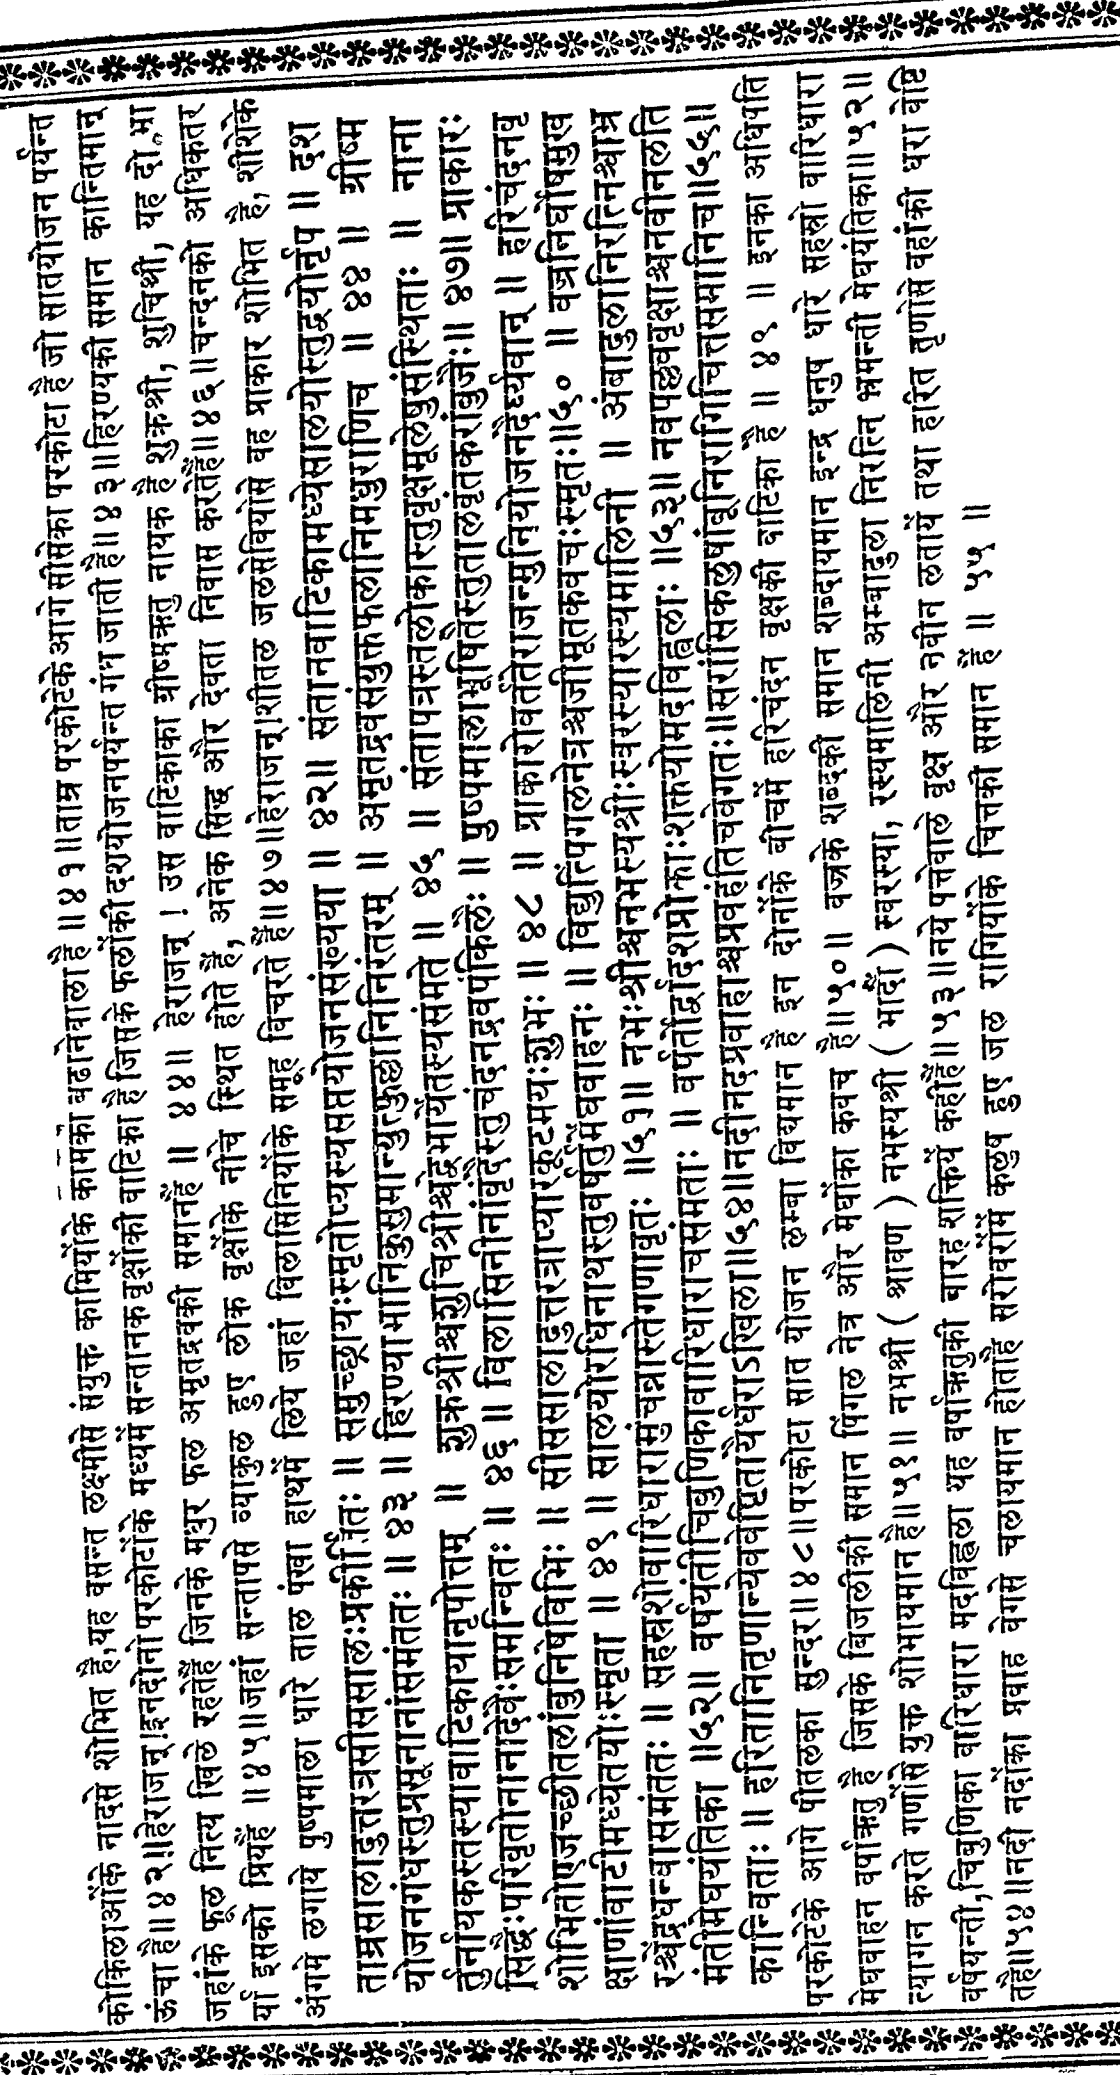 कोकिलाओंके नादसे शोभित है,यह वसन्त लक्ष्मीसे संयुक्त कामियोंके कामको बढानेवालाहै ॥४१॥ताम्र परकोटेके आगे सीसेका परकोटा है जो सातयोजन पर्यन्त
ऊंचा है॥४२॥हेराजन्!इनदोनो परकोटोंके मध्यमें सन्तानक वृक्षोंकी वाटिका है जिसके फलोंकी दशयोजनपर्यन्त गंध जाती है॥४३॥हिरण्यकी समान कान्तिमान्
जहांके फूल नित्य खिले रहतेहैं जिनके मधुर फल अमृतद्रवकी समानहैं ॥ ४४॥ हेराजन् ! उस वाटिकाका ग्रीष्मऋतु नायक है शुक्रश्री, शुचिश्री, यह दो भा
र्या इसको प्रियहैं ॥४५॥जहां सन्तापसे व्याकुल हुए लोक वृक्षोंके नीचे स्थित होते हैं, अनेक सिद्ध और देवता निवास करतेहैं॥४६॥चन्दनको अधिकतर
अंगमे लगाये पुष्पमाला धारे ताल पंखा हाथमें लिये जहां विलासिनियोंके समूह विचरते हैं॥४७॥हेराजन्!शीतल जलसेवियोंसे वह प्राकार शोभित है, शीशेके
ताम्रसालादुत्तरत्रसीससालःप्रकीर्तितः ॥ समुच्छ्रायःस्मृतोप्यस्यसप्तयोजनसंख्यया ॥ ४२॥ संतानवाटिकामध्येसालयोस्तुद्वयोर्नृप ॥ दश
योजनगंधस्तुप्रसूनानांसमंततः ॥ ४३ ॥ हिरण्याभानिकुसुमान्युत्फुल्लानिनिरंतरम् ॥ अमृतद्रवसंयुक्तफलानिमधुराणिच ॥ ४४ ॥ ग्रीष्म
र्तुर्नायकस्तस्यावाटिकायानृपोत्तम ॥ शुक्रश्रीश्चशुचिश्रीश्चद्वेभार्येतस्यसंमते ॥ ४५ ॥ संतापत्रस्तलोकास्तुवृक्षमूलेषुसंस्थिताः ॥ नाना
सिद्धैःपरिवृतोनानादेवैःसमन्वितः ॥ ४६ ॥ विलासिनीनांवृंदैस्तुचंदनद्रवपंकिलैः ॥ पुष्पमालाभूषितैस्तुतालवृंतकरांबुजैः॥ ४७॥ प्राकारः
शोभितोएजच्छीतलांबुनिषेविभिः ॥ सीससालादुत्तरत्राप्यारकूटमयःशुभः ॥ ४८ ॥ प्राकारोवर्ततेराजन्मुनियोजनदैर्घ्यवान् ॥ हरिचंदनवृ
क्षाणांवाटीमध्येतयोःस्मृता ॥ ४९ ॥ सालयोरधिनाथस्तुवर्षर्तुर्मेघवाहनः ॥ विद्युत्पिंगलनेत्रश्चजीमूतकवचःस्मृतः॥५० ॥ वज्रनिर्घोषमुख
रश्चेंद्रधन्वासमंततः ॥ सहस्रशोवारिधारामुंचन्नास्तेगणावृतः ॥५१॥ नभःश्रीश्चनभस्यश्रीःस्वरस्यारस्यमालिनी ॥ अंबादुलानिरत्निश्चाभ्र
मंतीमेघयंतिका ॥५२॥ वर्षयंतीचिबुणिकावारिधाराचसंमताः ॥ वर्षर्तोर्द्वादशप्रोक्ताःशक्तयोमदविह्वलाः ॥५३॥ नवपल्लववृक्षाश्चनवीनलति
कान्विताः ॥ हरितानितृणान्येववेष्टितायैर्धराऽखिला॥५४॥नदीनदप्रवाहाश्चप्रवहंतिचवेगतः॥सरांसिकलुषांबूनिरागिचित्तसमानिच॥५५॥
परकोटेके आगे पीतलका सुन्दर॥४८॥परकोटा सात योजन लम्बा विद्यमान है इन दोनोंके बीचमें हरिचंदन वृक्षकी वाटिका है ॥ ४९ ॥ इनका अधिपति
मेघवाहन वर्षाऋतु है जिसके बिजलीकी समान पिंगल नेत्र और मेघोंका कवच है॥५०॥ वज्रके शब्दकी समान शब्दायमान इन्द्र धनुष धारे सहस्रो वारिधारा
त्यागन करते गणोंसे युक्त शोभायमान है॥५१॥ नभश्री ( श्रावण ) नभस्यश्री ( भादौं ) स्वरस्या, रस्यमालिनी अम्बादुला निरत्नि भ्रमन्ती मेघयंतिका॥५२॥
वर्षयन्ती,चिबुणिका वारिधारा मदविह्वला यह वर्षाऋतुकी बारह शक्तियें कहींहैं॥५३॥नये पत्तेवाले वृक्ष और नवीन लतायें तथा हरित तृणोंसे वहांकी धरा वेष्टि
तहै॥५४॥नदी नदोंका प्रवाह वेगसे चलायमान होताहै सरोवरोंमें कलुष हुए जल रागियोंके चित्तकी समान हैं ॥ ५५ ॥